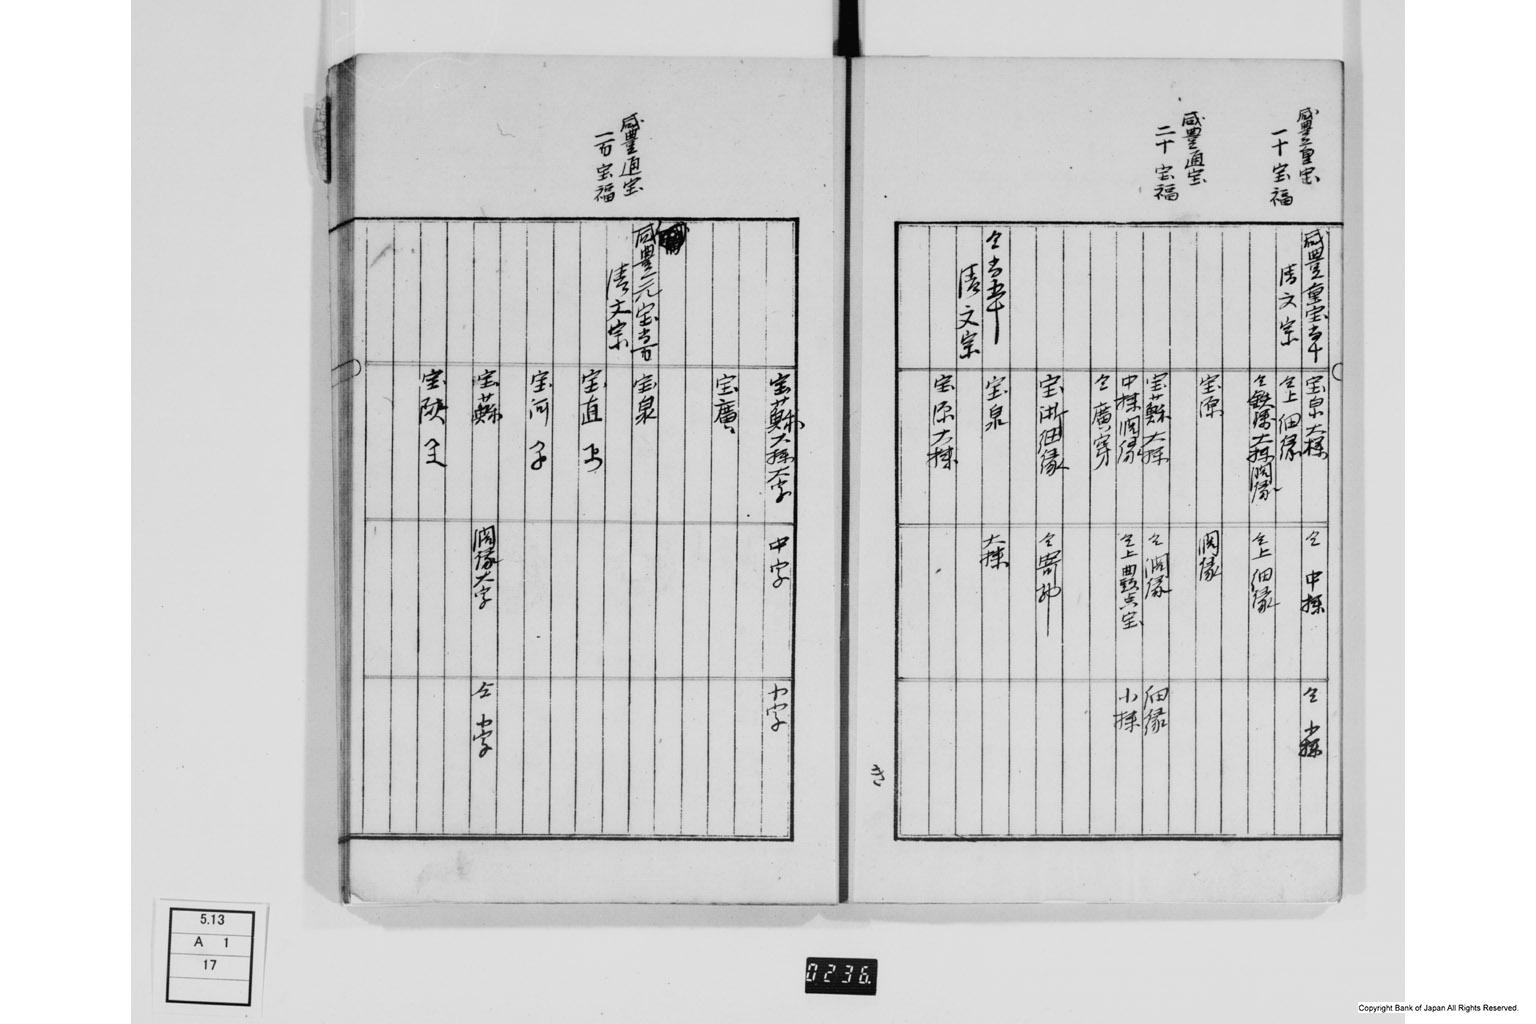 咸豐重宝
一十宝福
咸豐通宝
二十宝福
咸豐重宝当十
清文宗
宝泉大様
仝 中様
仝 小様
仝上細縁
仝鉄銭大様濶縁
仝上細縁
宝源
濶縁
宝蘇大様
仝濶縁
細縁
中様濶縁
小様
仝廣穿
宝浙細縁
仝当五十
清文宗
宝泉
大様
宝源大様
き
咸豐通宝
一百宝福
宝蘇大様大字
中字
小字
宝廣
咸豐元宝当百
清文宗
宝泉
宝直
宝河
宝蘇
濶縁大字
仝 小字
宝陝
5.13
A 1
17
0236
Copyright Bank of Japan All Rights Reserved.